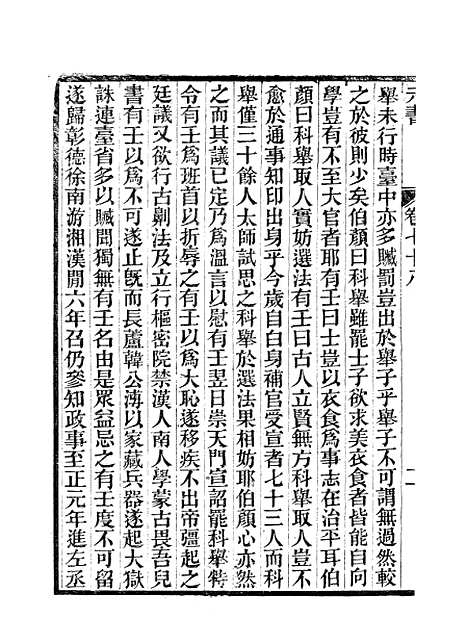 元書 卷七十八 二
舉未行時臺中亦多贓罰豈出於舉子乎舉子不可謂無過然較
之於彼則少矣伯顏曰科舉雖罷士子欲求美衣食者皆能自向
學豈有不至大官者耶有壬曰士豈以衣食爲事志在治平耳伯
顏曰科舉取人實妨選法有壬曰古人立賢無方科舉取人豈不
愈於通事知印出身乎今歲自白身補官受宣者七十三人而科
舉僅三十餘人太師試思之科舉於選法果相妨耶伯顏心亦然
之而其議已定乃爲溫言以慰有壬翌日崇天門宣詔罷科舉特
令有壬爲班首以折辱之有壬以爲大恥遂移疾不出帝彊起之
廷議又欲行古劓法及立行樞密院禁漢人南人學蒙古畏吾兒
書有壬以爲不可遂止旣而長蘆韓公溥以家藏兵器遂起大獄
誅連臺省多以贓聞獨無有壬名由是眾益忌之有壬度不可留
遂歸彰德徐南游湘漢閒六年召仍參知政事至正元年進左丞